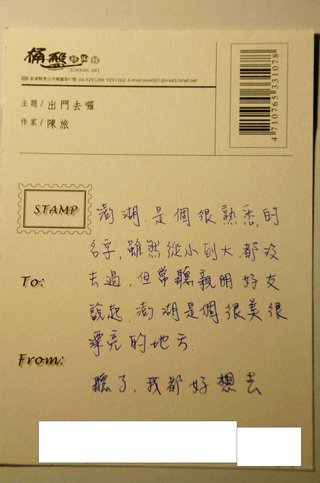 桶盤
TONPAN ART
主題/出門去囉
作家/陳旅
4710765331078
STAMP
To:
From:
澎湖,是個很熟悉的
名字,雖然從小到大,都沒
去過,但常聽親朋好友
說起 澎湖是個很美很
漂亮的地方
聽了,我都好想去